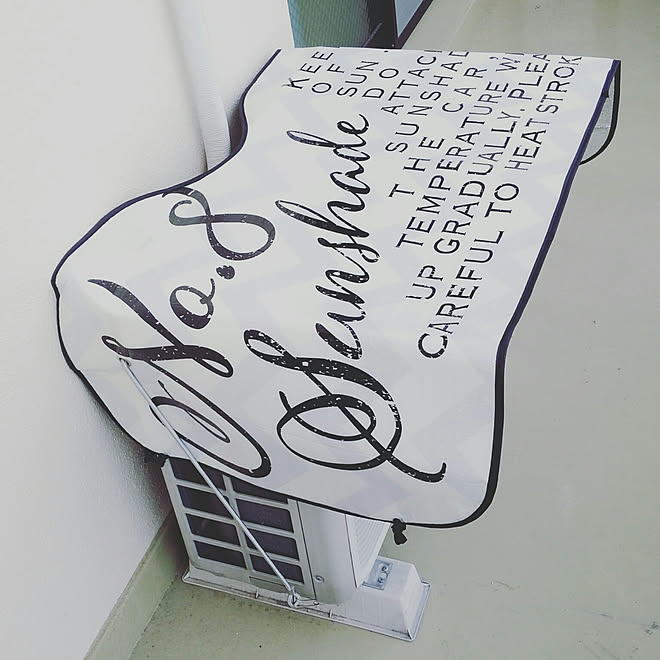 No.8
Sunshade
KEE
OF
SUN
DO
ATTACH
T SUNSHAD
THE CAR
TEMPERATURE W
UP GRADUALLY, PLEA
CAREFUL TO HEATSTROK